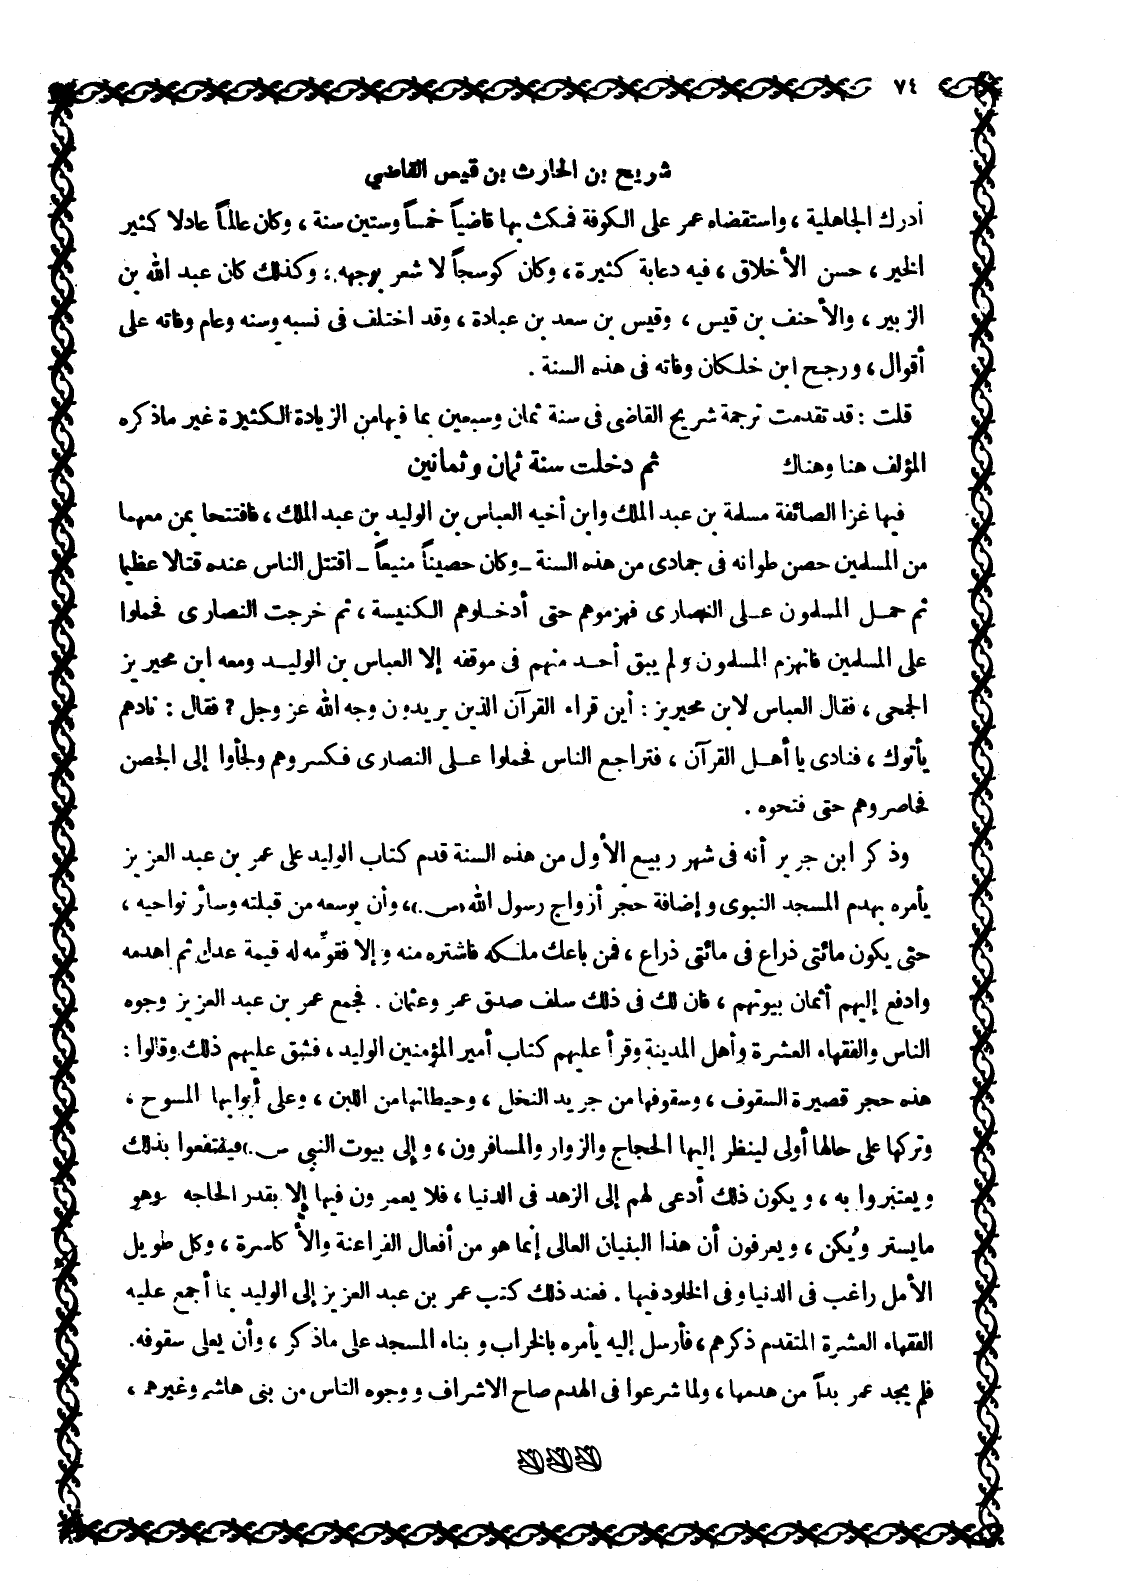 ٧٤
شريح بن الحارث بن قيس القاضي
أدرك الجاهلية ، واستقضاه عمر على الكوفة فمكث بها قاضياً خمساً وستين سنة ، وكان عالماً عادلا كثير
الخير ، حسن الأخلاق ، فيه دعابة كثيرة ، وكان كوسجاً لا شعر بوجهه ، وكذلك كان عبد الله بن
الزبير ، والأحنف بن قيس ، وقيس بن سعد بن عبادة ، وقد اختلف فى نسبه وسنه وعام وفاته على
أقوال ، ورجح ابن خلكان وفاته فى هذه السنة .
قلت : قد تقدمت ترجمة شريح القاضى فى سنة ثمان وسبعين بما فيها من الزيادة الكثيرة غير ماذكره
المؤلف هنا وهناك ثم دخلت سنة ثمان وثمانين
فيها غزا الصائفة مسلمة بن عبد الملك وابن أخيه العباس بن الوليد بن عبد الملك ، فافتتحا بمن معهما
من المسلمين حصن طوانه فى جمادى من هذه السنة ـ وكان حصيناً منيعاً ـ اقتتل الناس عنده قتالا عظيما
ثم حمل المسلمون على النصارى فهزموهم حتى أدخلوهم الكنيسة ، ثم خرجت النصارى فحملوا
على المسلمين فانهزم المسلمون ولم يبق أحد منهم فى موقفه إلا العباس بن الوليد ومعه ابن محيريز
الجمحى ، فقال العباس لابن محيريز : أين قراء القرآن الذين يريدون وجه الله عز وجل ? فقال : نادهم
يأتوك ، فنادى يا أهل القرآن ، فتراجع الناس فحملوا على النصارى فكسروهم ولجأوا إلى الحصن
فحاصروهم حتى فتحوه .
وذكر ابن جرير أنه فى شهر ربيع الأول من هذه السنة قدم كتاب الوليد على عمر بن عبد العزيز
يأمره بهدم المسجد النبوى وإضافة حجر أزواج رسول الله (س.)، وأن يوسعه من قبلته وسائر نواحيه ،
حتى يكون مائتى ذراع فى مائتى ذراع ، فمن باعك ملكه فاشتره منه وإلا فقوِّمه له قيمة عدل ثم اهدمه
وادفع إليهم أثمان بيوتهم ، فان لك فى ذلك سلف صدق عمر وعثمان . فجمع عمر بن عبد العزيز وجوه
الناس والفقهاء العشرة وأهل المدينة وقرأ عليهم كتاب أمير المؤمنين الوليد ، فشق عليهم ذلك وقالوا :
هذه حجر قصيرة السقوف ، وسقوفها من جريد النخل ، وحيطانها من اللبن ، وعلى أبوابها المسوح ،
وتركها على حالها أولى لينظر إليها الحجاج والزوار والمسافرون ، وإلى بيوت النبي (س.) فينتفعوا بذلك
ويعتبروا به ، ويكون ذلك أدعى لهم إلى الزهد فى الدنيا ، فلا يعمرون فيها إلا بقدر الحاجه وهو
مايستر ويُكن ، ويعرفون أن هذا البنيان العالى إنما هو من أفعال الفراعنة والأكاسرة ، وكل طويل
الأمل راغب فى الدنيا وفى الخلود فيها . فعند ذلك كتب عمر بن عبد العزيز إلى الوليد بما أجمع عليه
الفقهاء العشرة المتقدم ذكرهم ، فأرسل إليه يأمره بالخراب وبناء المسجد على ماذكر ، وأن يعلى سقوفه.
فلم يجد عمر بداً من هدمها ، ولما شرعوا فى الهدم صاح الاشراف ووجوه الناس من بنى هاشم وغيرهم ،